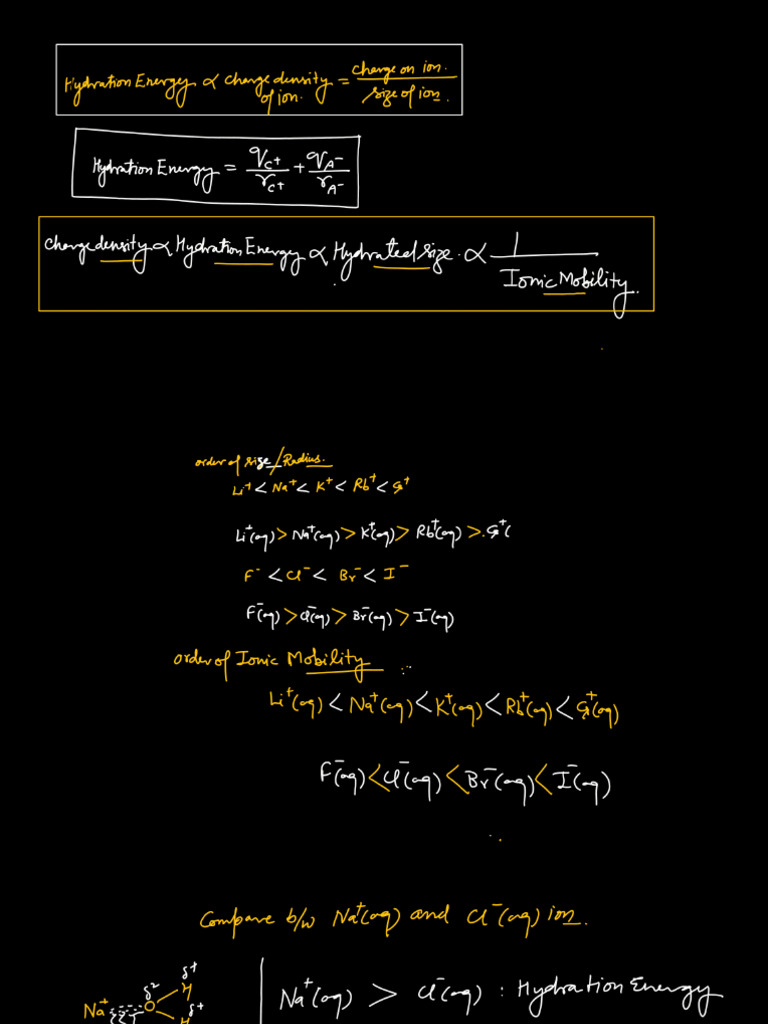 Hydration Energy ∝ charge density of ion. = charge on ion. / size of ion.
Hydration Energy = q_C+ / r_C+ + q_A- / r_A-
Charge density ∝ Hydration Energy ∝ Hydrated size. ∝ 1 / Ionic Mobility.
order of size/Radius.
Li⁺ < Na⁺ < K⁺ < Rb⁺ < Cs⁺
Li⁺(aq) > Na⁺(aq) > K⁺(aq) > Rb⁺(aq) > Cs⁺(
F⁻ < Cl⁻ < Br⁻ < I⁻
F⁻(aq) > Cl⁻(aq) > Br⁻(aq) > I⁻(aq)
order of Ionic Mobility :
Li⁺(aq) < Na⁺(aq) < K⁺(aq) < Rb⁺(aq) < Cs⁺(aq)
F⁻(aq) < Cl⁻(aq) < Br⁻(aq) < I⁻(aq)
Compare b/w Na⁺(aq) and Cl⁻(aq) ion.
δ⁺
δ² H
Na⁺ O δ⁺
H
Na⁺(aq) > Cl⁻(aq) : Hydration Energy